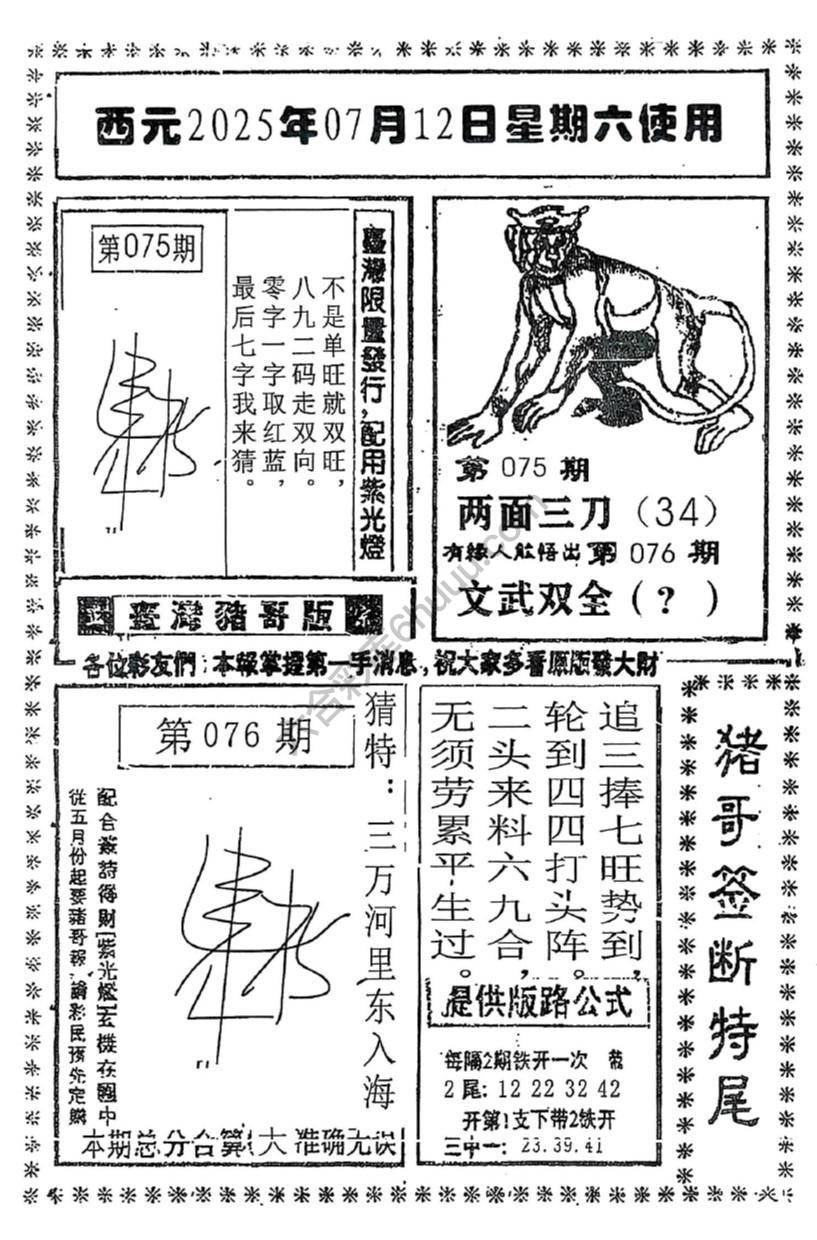 西元2025年07月12日星期六使用
第075期
臺灣限量發行,配用紫光燈
不是单旺就双旺,
八九二码走双向。
零字一字取红蓝,
最后七字我来猜。
臺灣豬哥版
第 075 期
两面三刀（34）
有緣人能悟出 第 076 期
文武双全（？）
各位彩友們:本報掌握第一手消息,祝大家多看原版發大財
第 076 期
猜特：三万河里东入海
配合簽詩得財[紫光燈]玄機在圖中
從五月份起要豬哥報,請彩民預先定購
本期总分合算大 准确无误
追三捧七旺势到,
轮到四四打头阵。
二头来料六九合,
无须劳累平生过。
提供版路公式
每隔2期铁开一次 带
2尾: 12 22 32 42
开第1支下带2铁开
三中一: 23.39.41
猪哥签断特尾
六合彩库6huuu.com